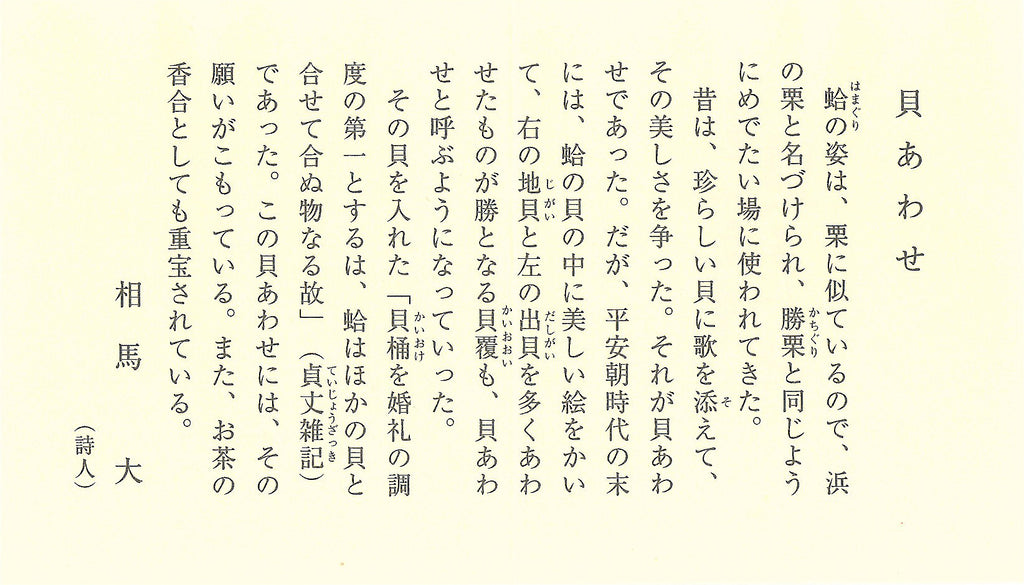 貝あわせ
蛤の姿は、栗に似ているので、浜
の栗と名づけられ、勝栗と同じよう
にめでたい場に使われてきた。
昔は、珍らしい貝に歌を添えて、
その美しさを争った。それが貝あわ
せであった。だが、平安朝時代の末
には、蛤の貝の中に美しい絵をかい
て、右の地貝と左の出貝を多くあわ
せたものが勝となる貝覆も、貝あわ
せと呼ぶようになっていった。
その貝を入れた「貝桶を婚礼の調
度の第一とするは、蛤はほかの貝と
合せて合ぬ物なる故」（貞丈雑記）
であった。この貝あわせには、その
願いがこもっている。また、お茶の
香合としても重宝されている。
相馬大
（詩人）
はまぐり
かちぐり
そ
じがい
だしがい
かいおおい
かいおけ
ていじょうざっき